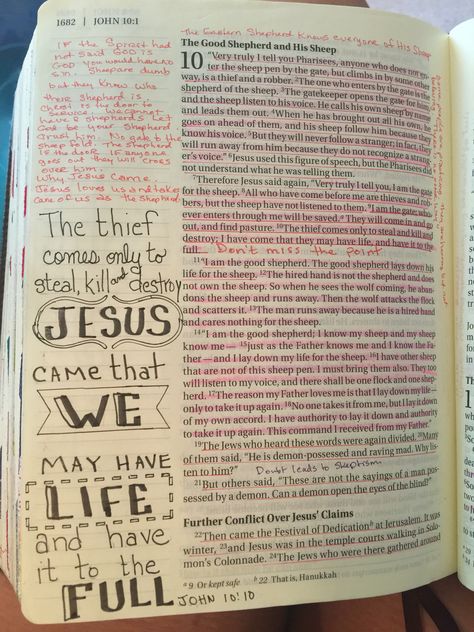 1682 | JOHN 10:1
The Eastern Shepherd knows everyone of His Sheep
IF the Spirit had
not said GOD IS
GOD you would have no
sin. Sheep are dumb
but they know who
their shepherd is
Christ is the door to
service and cannot
have a shepherd & Let
God be your shepherd
trust him. No gate to the
sheep fold. The shepherd
is the door. IF anyone
goes out they will cross
over him.
Why Jesus came.
Jesus loves us and takes
care of us as the shepherd
The thief
comes only to
steal, kill and destroy
JESUS
CAME THAT
WE
MAY HAVE
LIFE
and have
it to the
FULL
JOHN 10:10
The Good Shepherd and His Sheep
10 "Very truly I tell you Pharisees, anyone who does not en-
ter the sheep pen by the gate, but climbs in by some other
way, is a thief and a robber. 2The one who enters by the gate is the
shepherd of the sheep. 3The gatekeeper opens the gate for him,
and the sheep listen to his voice. He calls his own sheep by name
and leads them out. 4When he has brought out all his own, he
goes on ahead of them, and his sheep follow him because they
know his voice. 5But they will never follow a stranger; in fact, they
will run away from him because they do not recognize a strang-
er's voice." 6Jesus used this figure of speech, but the Pharisees did
not understand what he was telling them.
7Therefore Jesus said again, "Very truly I tell you, I am the gate
for the sheep. 8All who have come before me are thieves and rob-
bers, but the sheep have not listened to them. 9I am the gate; who-
ever enters through me will be saved.a They will come in and go
out, and find pasture. 10The thief comes only to steal and kill and
destroy; I have come that they may have life, and have it to the
full. Don't miss the point
11"I am the good shepherd. The good shepherd lays down his
life for the sheep. 12The hired hand is not the shepherd and does
not own the sheep. So when he sees the wolf coming, he aban-
dons the sheep and runs away. Then the wolf attacks the flock
and scatters it. 13The man runs away because he is a hired hand
and cares nothing for the sheep.
14"I am the good shepherd; I know my sheep and my sheep
know me — 15just as the Father knows me and I know the Fa-
ther — and I lay down my life for the sheep. 16I have other sheep
that are not of this sheep pen. I must bring them also. They too
will listen to my voice, and there shall be one flock and one shep-
herd. 17The reason my Father loves me is that I lay down my life —
only to take it up again. 18No one takes it from me, but I lay it down
of my own accord. I have authority to lay it down and authority
to take it up again. This command I received from my Father."
19The Jews who heard these words were again divided. 20Many
of them said, "He is demon-possessed and raving mad. Why lis-
ten to him?" Doubt leads to skeptism
21But others said, "These are not the sayings of a man pos-
sessed by a demon. Can a demon open the eyes of the blind?"
Further Conflict Over Jesus' Claims
22Then came the Festival of Dedicationb at Jerusalem. It was
winter, 23and Jesus was in the temple courts walking in Solo-
mon's Colonnade. 24The Jews who were there gathered around
a 9 Or kept safe b 22 That is, Hanukkah